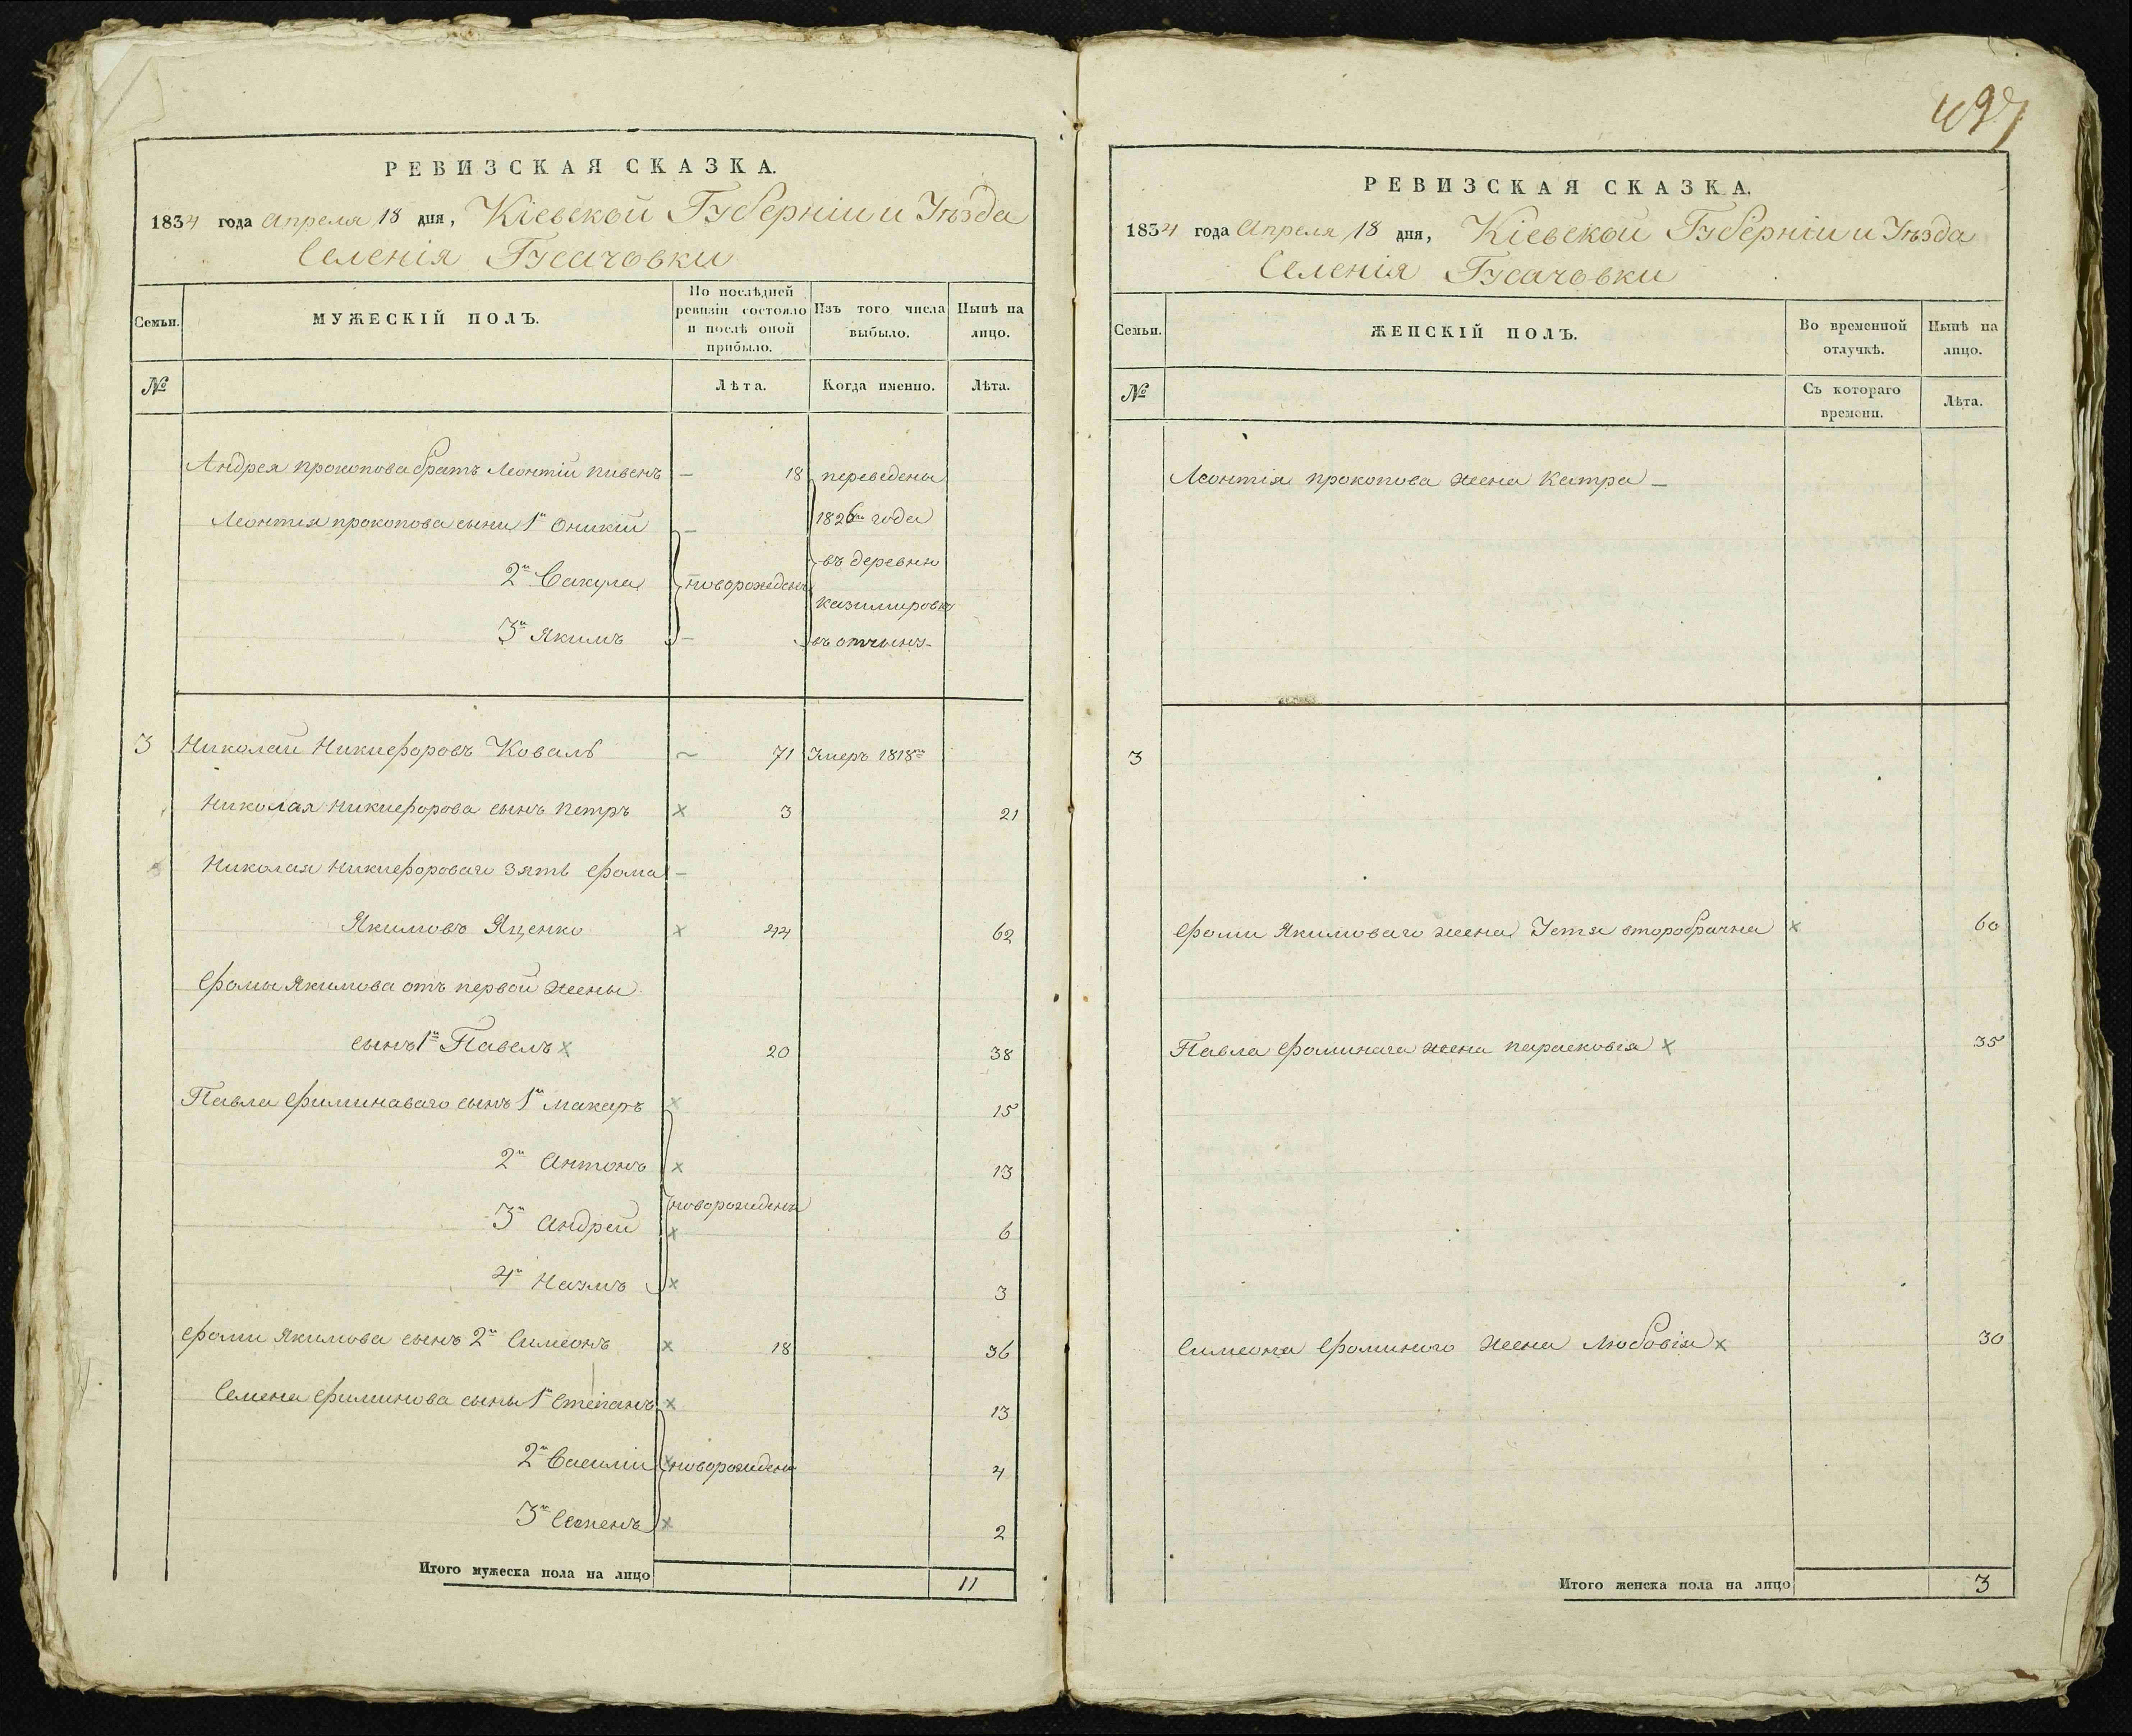 РЕВИЗСКАЯ СКАЗКА.
1834 года Апреля 18 дня, Кіевской Губерніи и Уѣзда
Селенія Гусачовки
Семьи.
МУЖЕСКІЙ ПОЛЪ.
По послѣдней ревизіи состояло и послѣ оной прибыло.
Изъ того числа выбыло.
Нынѣ на лицо.
№
Лѣта.
Когда именно.
Лѣта.
Андрея прокопова братъ Леонтій пивень — 18 переведены
Леонтія прокопова сыны 1й Оникій — 1826го года
въ деревню
2й Вакула новорожденъ
казимировку
3й Якимъ — въ отчынъ
3 Николай Никиефоровъ Коваль ~ 71 Умеръ 1818го
Николая Никиефорова сынъ Петръ x 3 21
Николая Никиефороваго зять Фома —
Якимовъ Яценко x 44 62
Фомы Якимова отъ первой жены
сынъ 1й Павелъ x 20 38
Павла Фиминаваго сынъ 1й Макаръ x 15
2й Антонъ x 13
новорождены
3й Андрей x 6
4й Наумъ x 3
Фоми Якимова сынъ 2й Симеонъ x 18 36
Семена Фиминова сыны 1й Степанъ x 13
2й Василій x новорождены 4
3й Семенъ x 2
Итого мужеска пола на лицо 11
497
РЕВИЗСКАЯ СКАЗКА.
1834 года Апреля 18 дня, Кіевской Губерніи и Уѣзда
Селенія Гусачовки
Семьи.
ЖЕНСКІЙ ПОЛЪ.
Во временной отлучкѣ.
Нынѣ на лицо.
№
Съ котораго времени.
Лѣта.
Леонтія прокопова жена Катра —
3
Фоми Якимоваго жена Устя второбрачна x 60
Павла Фоминага жена парасковія x 35
Симеона Фоминого жена Любовія x 30
Итого женска пола на лицо 3